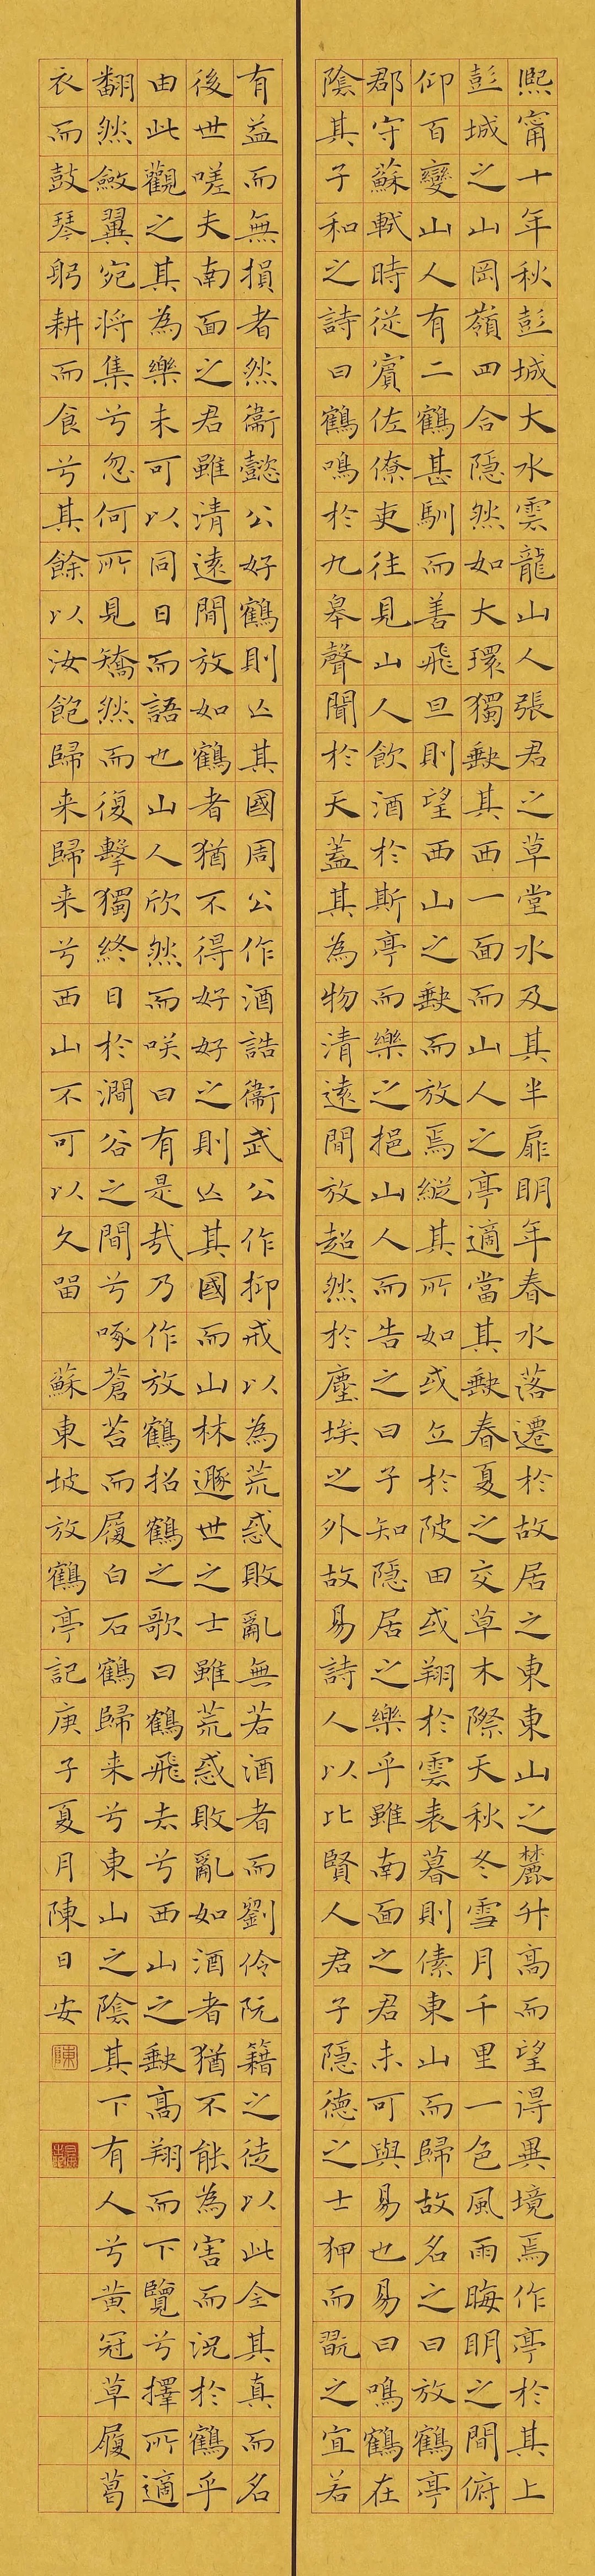 熙甯十年秋彭城大水雲龍山人張君之草堂水及其半扉明年春水落遷於故居之東東山之麓升高而望得異境焉作亭於其上
彭城之山岡嶺四合隱然如大環獨缺其西一面而山人之亭適當其缺春夏之交草木際天秋冬雪月千里一色風雨晦明之間俯
仰百變山人有二鶴甚馴而善飛旦則望西山之缺而放焉縱其所如或立於陂田或翔於雲表暮則傃東山而歸故名之曰放鶴亭
郡守蘇軾時從賓佐僚吏往見山人飲酒於斯亭而樂之挹山人而告之曰子知隱居之樂乎雖南面之君未可與易也易曰鳴鶴在
陰其子和之詩曰鶴鳴於九皋聲聞於天蓋其為物清遠間放超然於塵埃之外故易詩人以比賢人君子隱德之士狎而翫之宜若
有益而無損者然衞懿公好鶴則亡其國周公作酒誥衞武公作抑戒以為荒惑敗亂無若酒者而劉伶阮籍之徒以此全其真而名
後世嗟夫南面之君雖清遠間放如鶴者猶不得好好之則亡其國而山林遯世之士雖荒惑敗亂如酒者猶不能為害而況於鶴乎
由此觀之其為樂未可以同日而語也山人欣然而咲曰有是哉乃作放鶴招鶴之歌曰鶴飛去兮西山之缺高翔而下覽兮擇所適
翻然斂翼宛將集兮忽何所見矯然而復擊獨終日於澗谷之間兮啄蒼苔而履白石鶴歸来兮東山之陰其下有人兮黃冠草履葛
衣而鼓琴躬耕而食兮其餘以汝飽歸来歸来兮西山不可以久留 蘇東坡放鶴亭記庚子夏月陳日安
陳